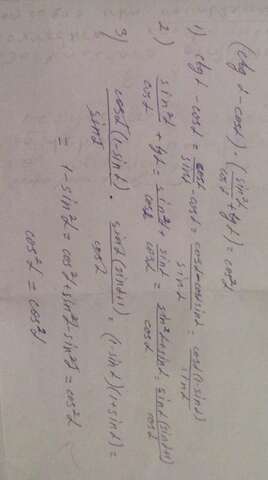 (ctg α - cos α) · (sin²α/cos α + tg α) = cos²α
1) ctg α - cos α = cos α/sin α - cos α = cos α - cos α sin α/sin α = cos α(1 - sin α)/sin α
2) sin²α/cos α + tg α = sin²α/cos α + sin α/cos α = sin²α + sin α/cos α = sin α(sin α+1)/cos α
3) cos α(1 - sin α)/sin α · sin α(sin α+1)/cos α = (1 - sin α)(1 + sin α) =
= 1 - sin²α = cos²α + sin²α - sin²α = cos²α
cos²α = cos²α